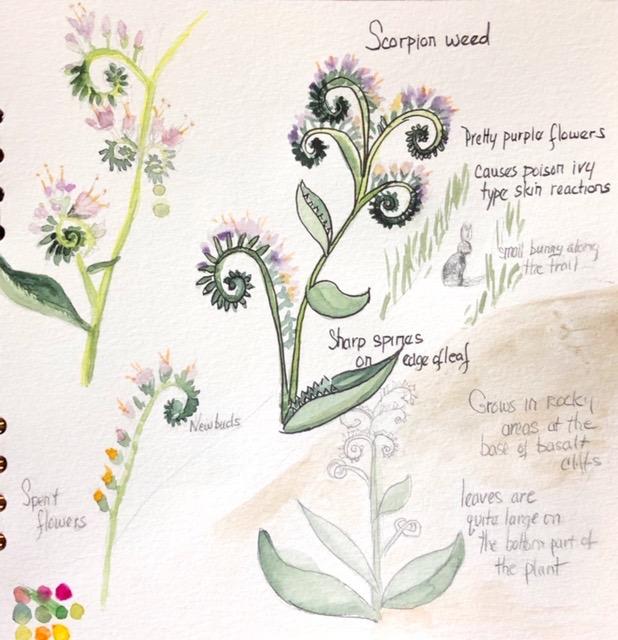 Scorpion weed
Pretty purple flowers
causes poison ivy
type skin reactions
small bunny along
the trail
Sharp spines
on edge of leaf
New buds
Grows in rocky
areas at the
base of basalt
cliffs
Spent
flowers
leaves are
quite large on
the bottom part of
the plant